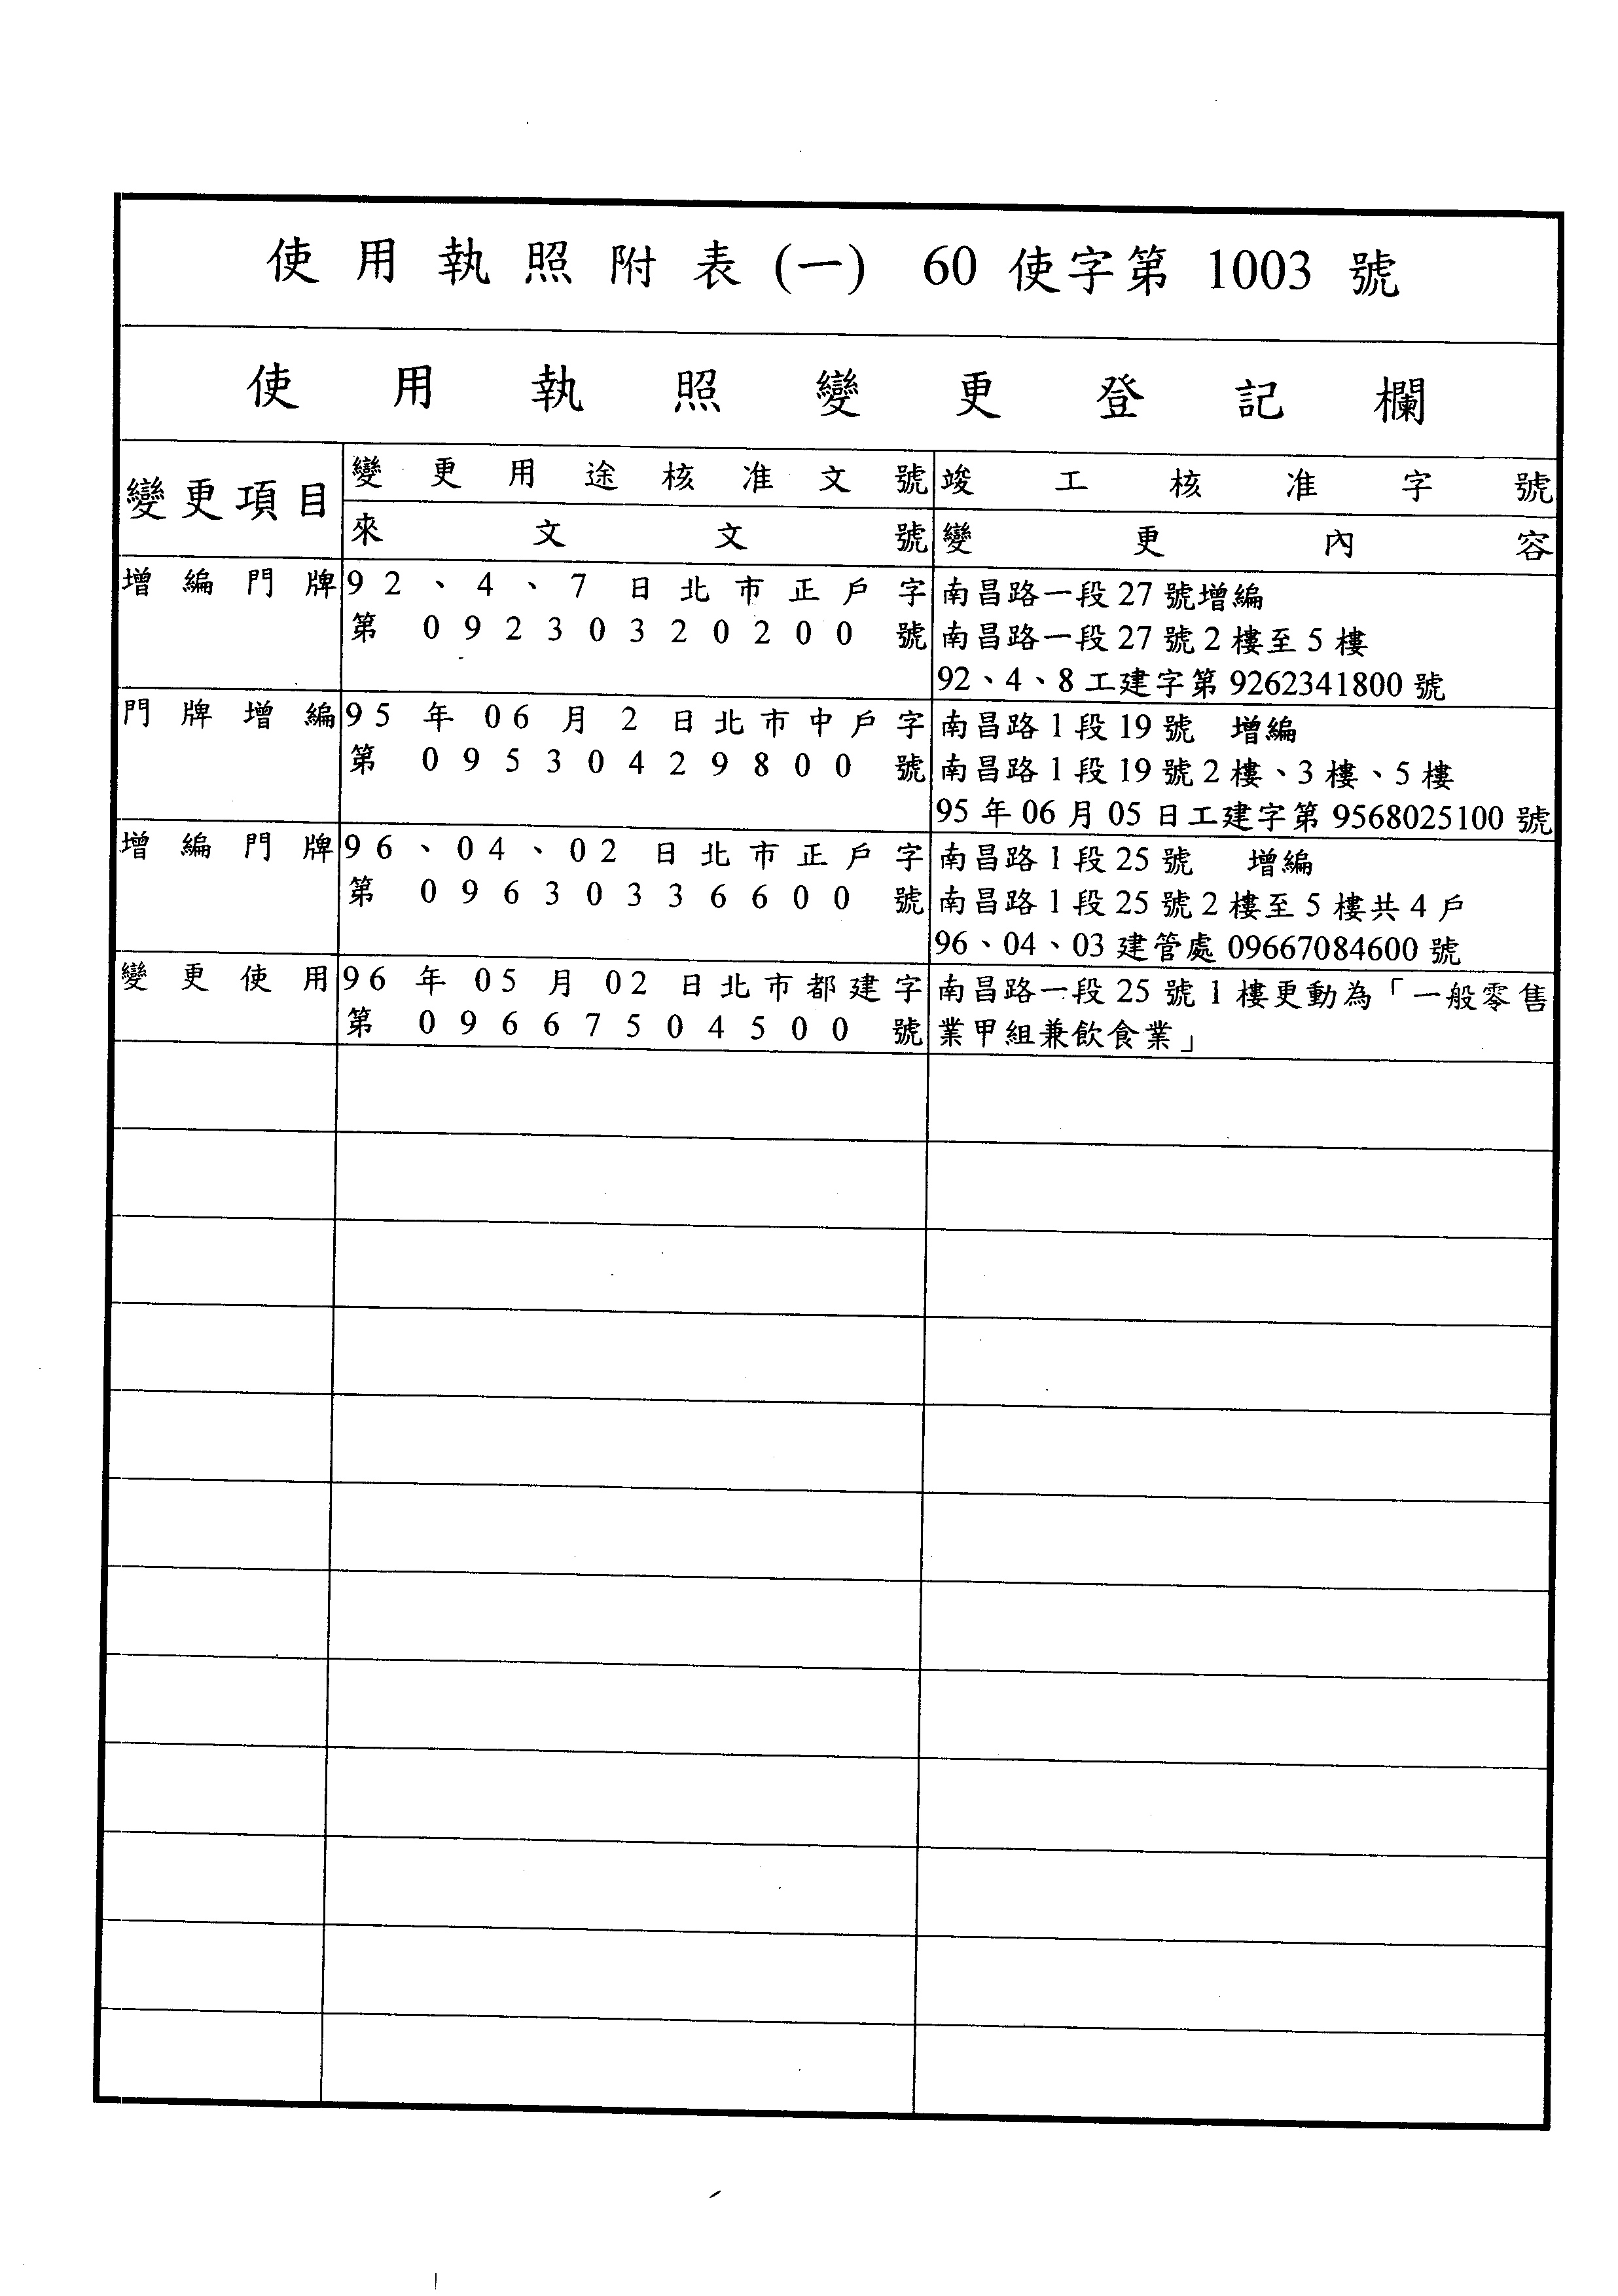 使用執照附表(一) 60使字第1003號
使用執照變更登記欄
變更項目
變更用途核准文號
竣工核准字號
來文文號
變更內容
增編門牌
92、4、7日北市正戶字
第09230320200號
南昌路一段27號增編
南昌路一段27號2樓至5樓
92、4、8工建字第9262341800號
門牌增編
95年06月2日北市中戶字
第09530429800號
南昌路1段19號 增編
南昌路1段19號2樓、3樓、5樓
95年06月05日工建字第9568025100號
增編門牌
96、04、02日北市正戶字
第09630336600號
南昌路1段25號 增編
南昌路1段25號2樓至5樓共4戶
96、04、03建管處09667084600號
變更使用
96年05月02日北市都建字
第09667504500號
南昌路一段25號1樓更動為「一般零售
業甲組兼飲食業」